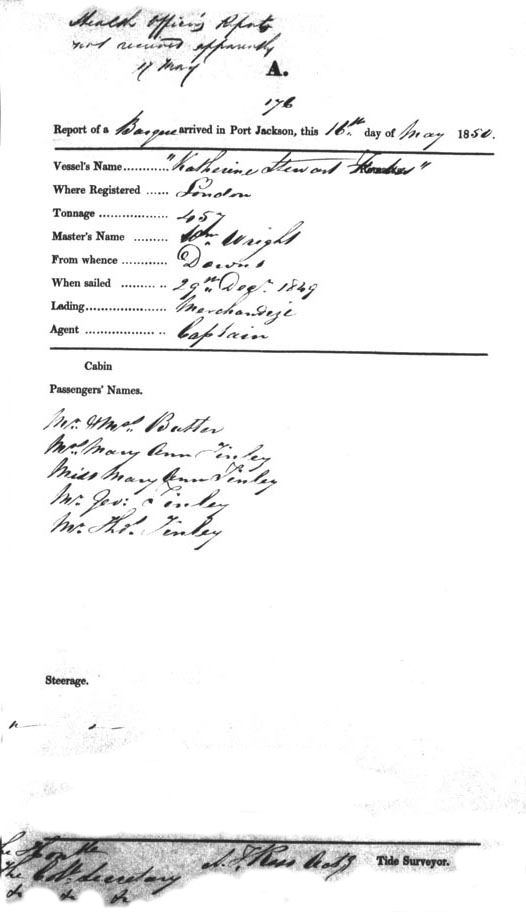 Health Officer's Report
not received apparently
17 May
A.
176
Report of a Barque arrived in Port Jackson, this 16th day of May 1850.
Vessel's Name............ "Katherine Stewart Forbes"
Where Registered ...... London
Tonnage .................... 457
Master's Name ......... Wm Wright
From whence ............ Downs
When sailed ......... .. 29th Decr. 1849
Lading...................... Merchandize
Agent ................... .. Captain
Cabin
Passengers' Names.
Mr. & Mrs. Butter
Mrs. Mary Ann Tinley
Miss Mary Ann Tinley
Mr. Geo: Tinley
Mr. Thos. Tinley
Steerage.
The Honble
The Col. Secretary Tide Surveyor.
&c &c &c